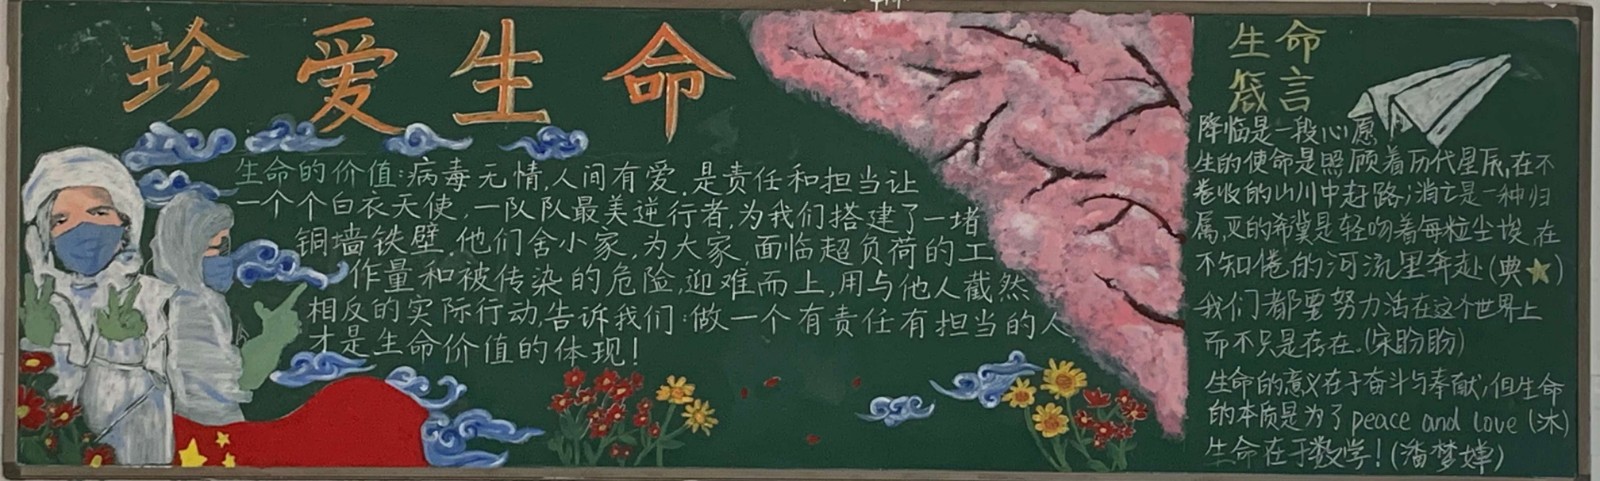 珍爱生命
生命的价值:病毒无情,人间有爱.是责任和担当让
一个个白衣天使,一队队最美逆行者,为我们搭建了一堵
铜墙铁壁.他们舍小家,为大家,面临超负荷的工
作量和被传染的危险,迎难而上,用与他人截然
相反的实际行动,告诉我们:做一个有责任有担当的人
才是生命价值的体现!
生命
箴言
降临是一段心愿
生的使命是照顾着历代星辰,在不
卷收的山川中赶路;消亡是一种归
属,灭的希冀是轻吻着每粒尘埃,在
不知倦的河流里奔赴(典★)
我们都要努力活在这个世界上
而不只是存在.(宋盼盼)
生命的意义在于奋斗与奉献,但生命
的本质是为了peace and love(沐)
生命在于数学!(潘梦婵)